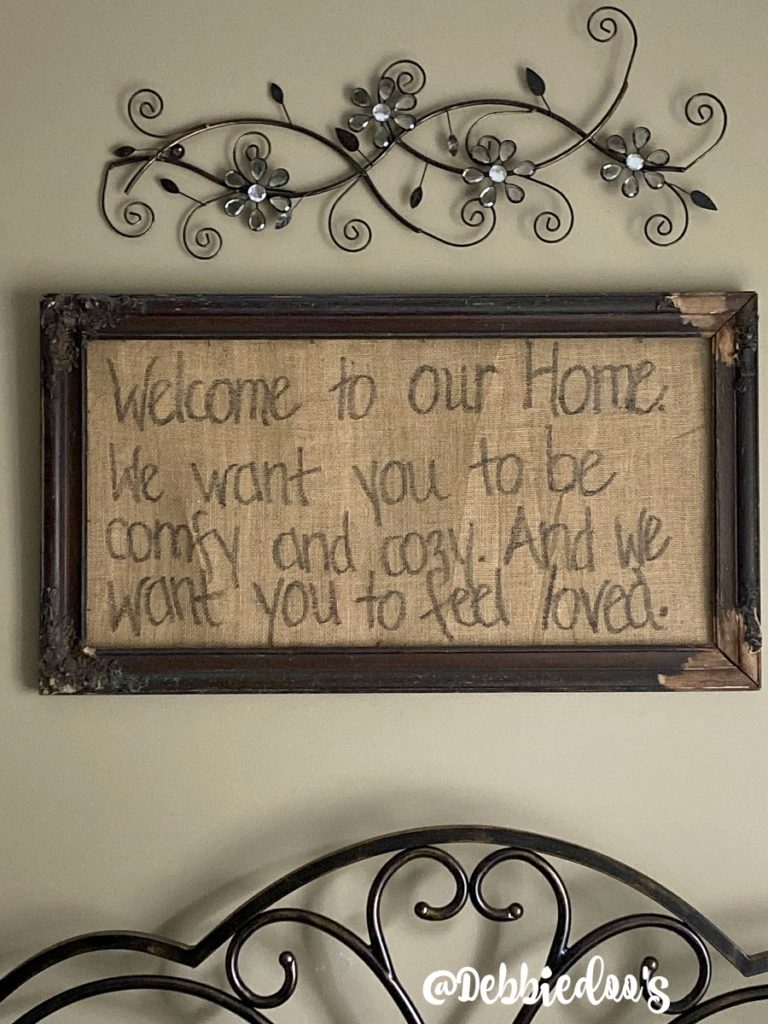 Welcome to our Home.
We want you to be
comfy and cozy. And we
want you to feel loved.
@Debbiedoo's